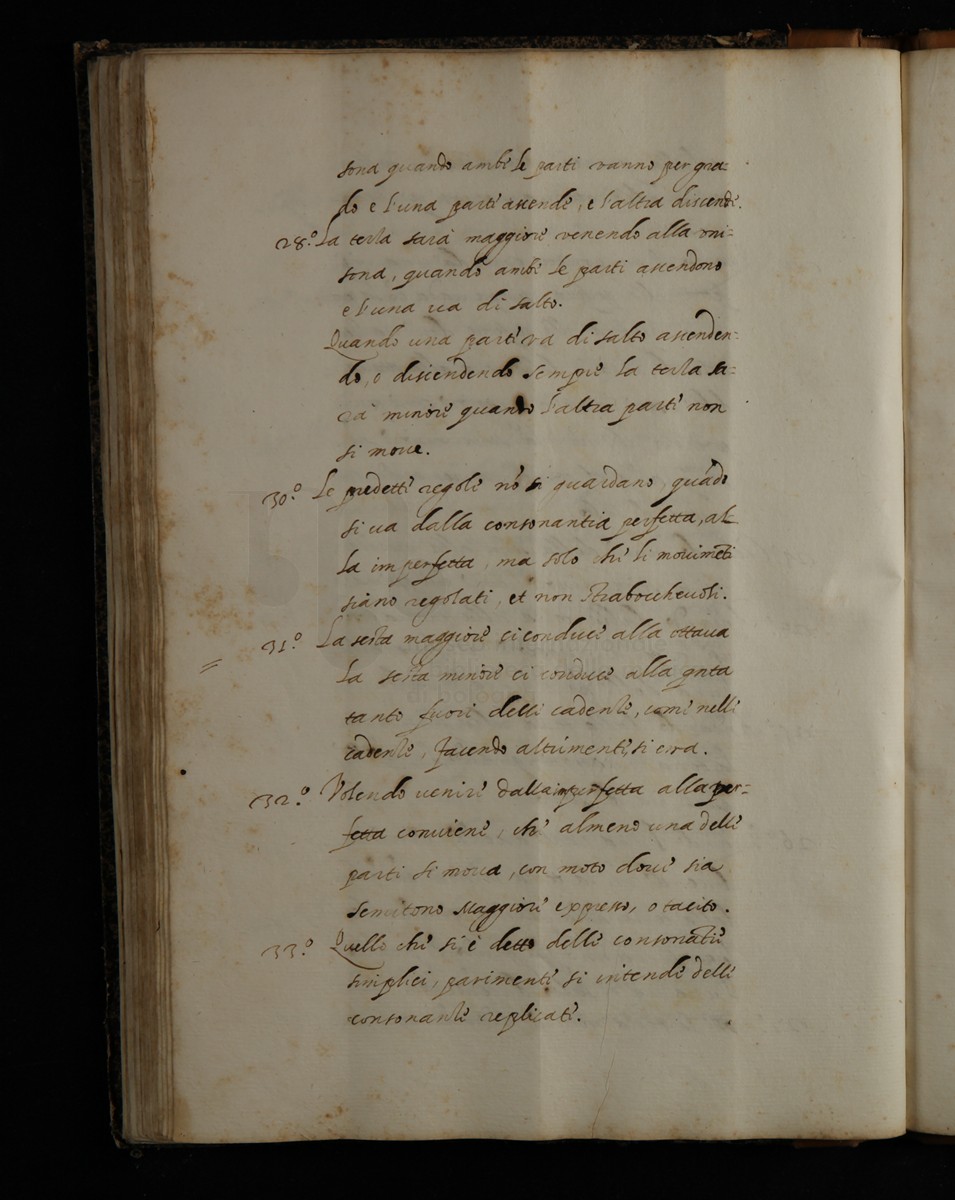 sona quando ambe le parti vanno per gra-
do e l'una parte ascende, e l'altra discende.
28.º La terza sarà maggiore venendo alla vni-
sona, quando ambe le parti ascendono
e l'una ua di salto.
Quando una parte va di salto ascenden-
do, o discendendo sempre la terza sa-
rà minore quando l'altra parte non
si moue.
30.º Le predette regole nõ si guardano, quãdo
si ua dalla consonantia perfetta, al-
la imperfetta, ma solo che li mouimẽti
siano regolati, et non strabocheuoli.
31.º La sesta maggiore ci conduce alla ottaua
la sesta minore ci conduce alla qnta
tanto fuori delle cadenze, come nelle
cadenze, facendo altrimente, si erra.
32.º Volendo uenire dalla imperfetta alla per-
fetta conuiene, che almeno una delle
parti si moua, con moto doue sia
semitono Maggiore expresso, o tacito.
33.º Quello che si è detto delle consonãtie
simplici, parimente si intende delle
consonanze replicate.